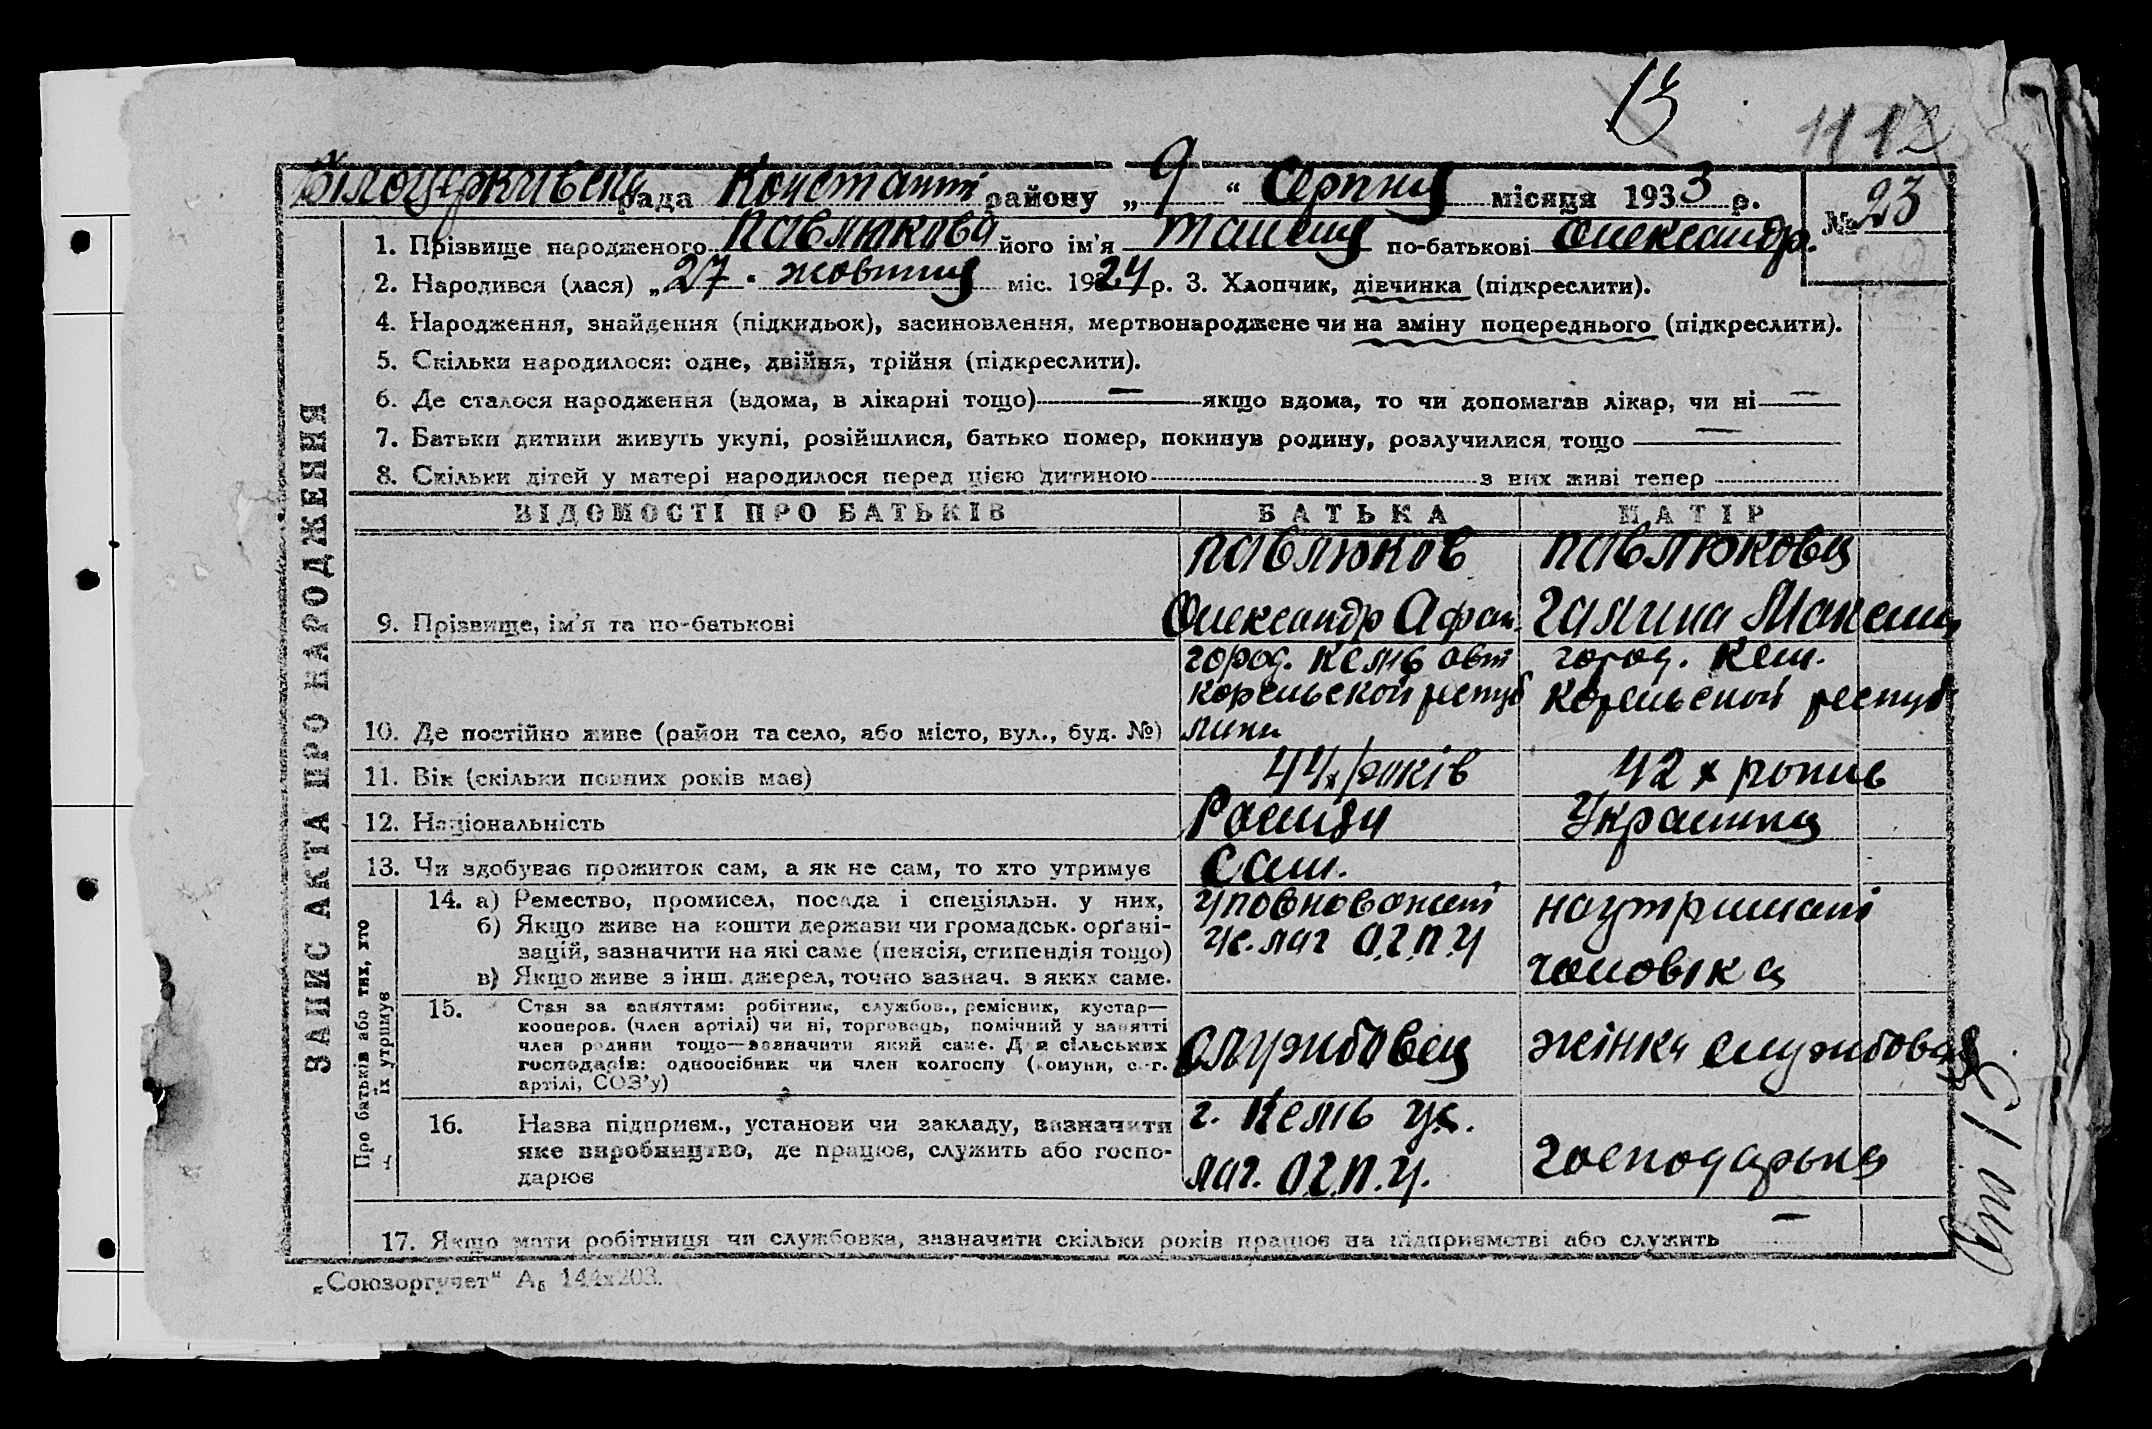 13
1112
Білоцерківська рада Констант району „ 9 “ Серпня місяця 1933 р.
№ 23
1. Прізвище народженого Павлюкова його ім'я по-батькові Олександр.
2. Народився (лася) „27 “ жовтня міс. 1924 р. 3. Хлопчик, дівчинка (підкреслити).
4. Народження, знайдення (підкидьок), засиновлення, мертвонароджене чи на зміну попереднього (підкреслити).
5. Скільки народилося: одне, двійня, трійня (підкреслити).
6. Де сталося народження (вдома, в лікарні тощо) — якщо вдома, то чи допомагав лікар, чи ні —
7. Батьки дитини живуть укупі, розійшлися, батько помер, покинув родину, розлучилися тощо —
8. Скільки дітей у матері народилося перед цією дитиною з них живі тепер
ЗАПИС АКТА ПРО НАРОДЖЕННЯ
ВІДОМОСТІ ПРО БАТЬКІВ БАТЬКА МАТІР
Павлюков Павлюкова
9. Прізвище, ім'я та по-батькові Олександр Афан. Галина
город. Кемь авт город. Кем.
корельской респуб Корельской респуб
10. Де постійно живе (район та село, або місто, вул., буд. №) лики
11. Вік (скільки повних років має) 44х років 42 х років
12. Національність Росіян Українка
13. Чи здобуває прожиток сам, а як не сам, то хто утримує Сам.
Про батьків або тих, хто їх утримує
14. а) Ремество, промисел, посада і спеціяльн. у них, Уповноважені на утримані
б) Якщо живе на кошти держави чи громадськ. органі- Ус. лаг О.Г.П.У
зацій, зазначити на які саме (пенсія, стипендія тощо) чоловіка
в) Якщо живе з інш. джерел, точно зазнач. з яких саме.
15. Стан за заняттям: робітник, службов., ремісник, кустар—
кооперов. (член артілі) чи ні, торговець, помічний у занятті
член родини тощо—зазначити який саме. Для сільських службовец жінка службовця
господарів: одноосібник чи член колгоспу (комуни, с.-г.
артілі, СОЗ'у)
г. Кемь Ус.
16. Назва підприєм., установи чи закладу, зазначити
яке виробництво, де працює, служить або госпо- лаг. О.Г.П.У. господарька
дарює
17. Якщо мати робітниця чи службовка, зазначити скільки років працює на підприємстві або служить —
„Союзоргучет“ А₅ 144х203.